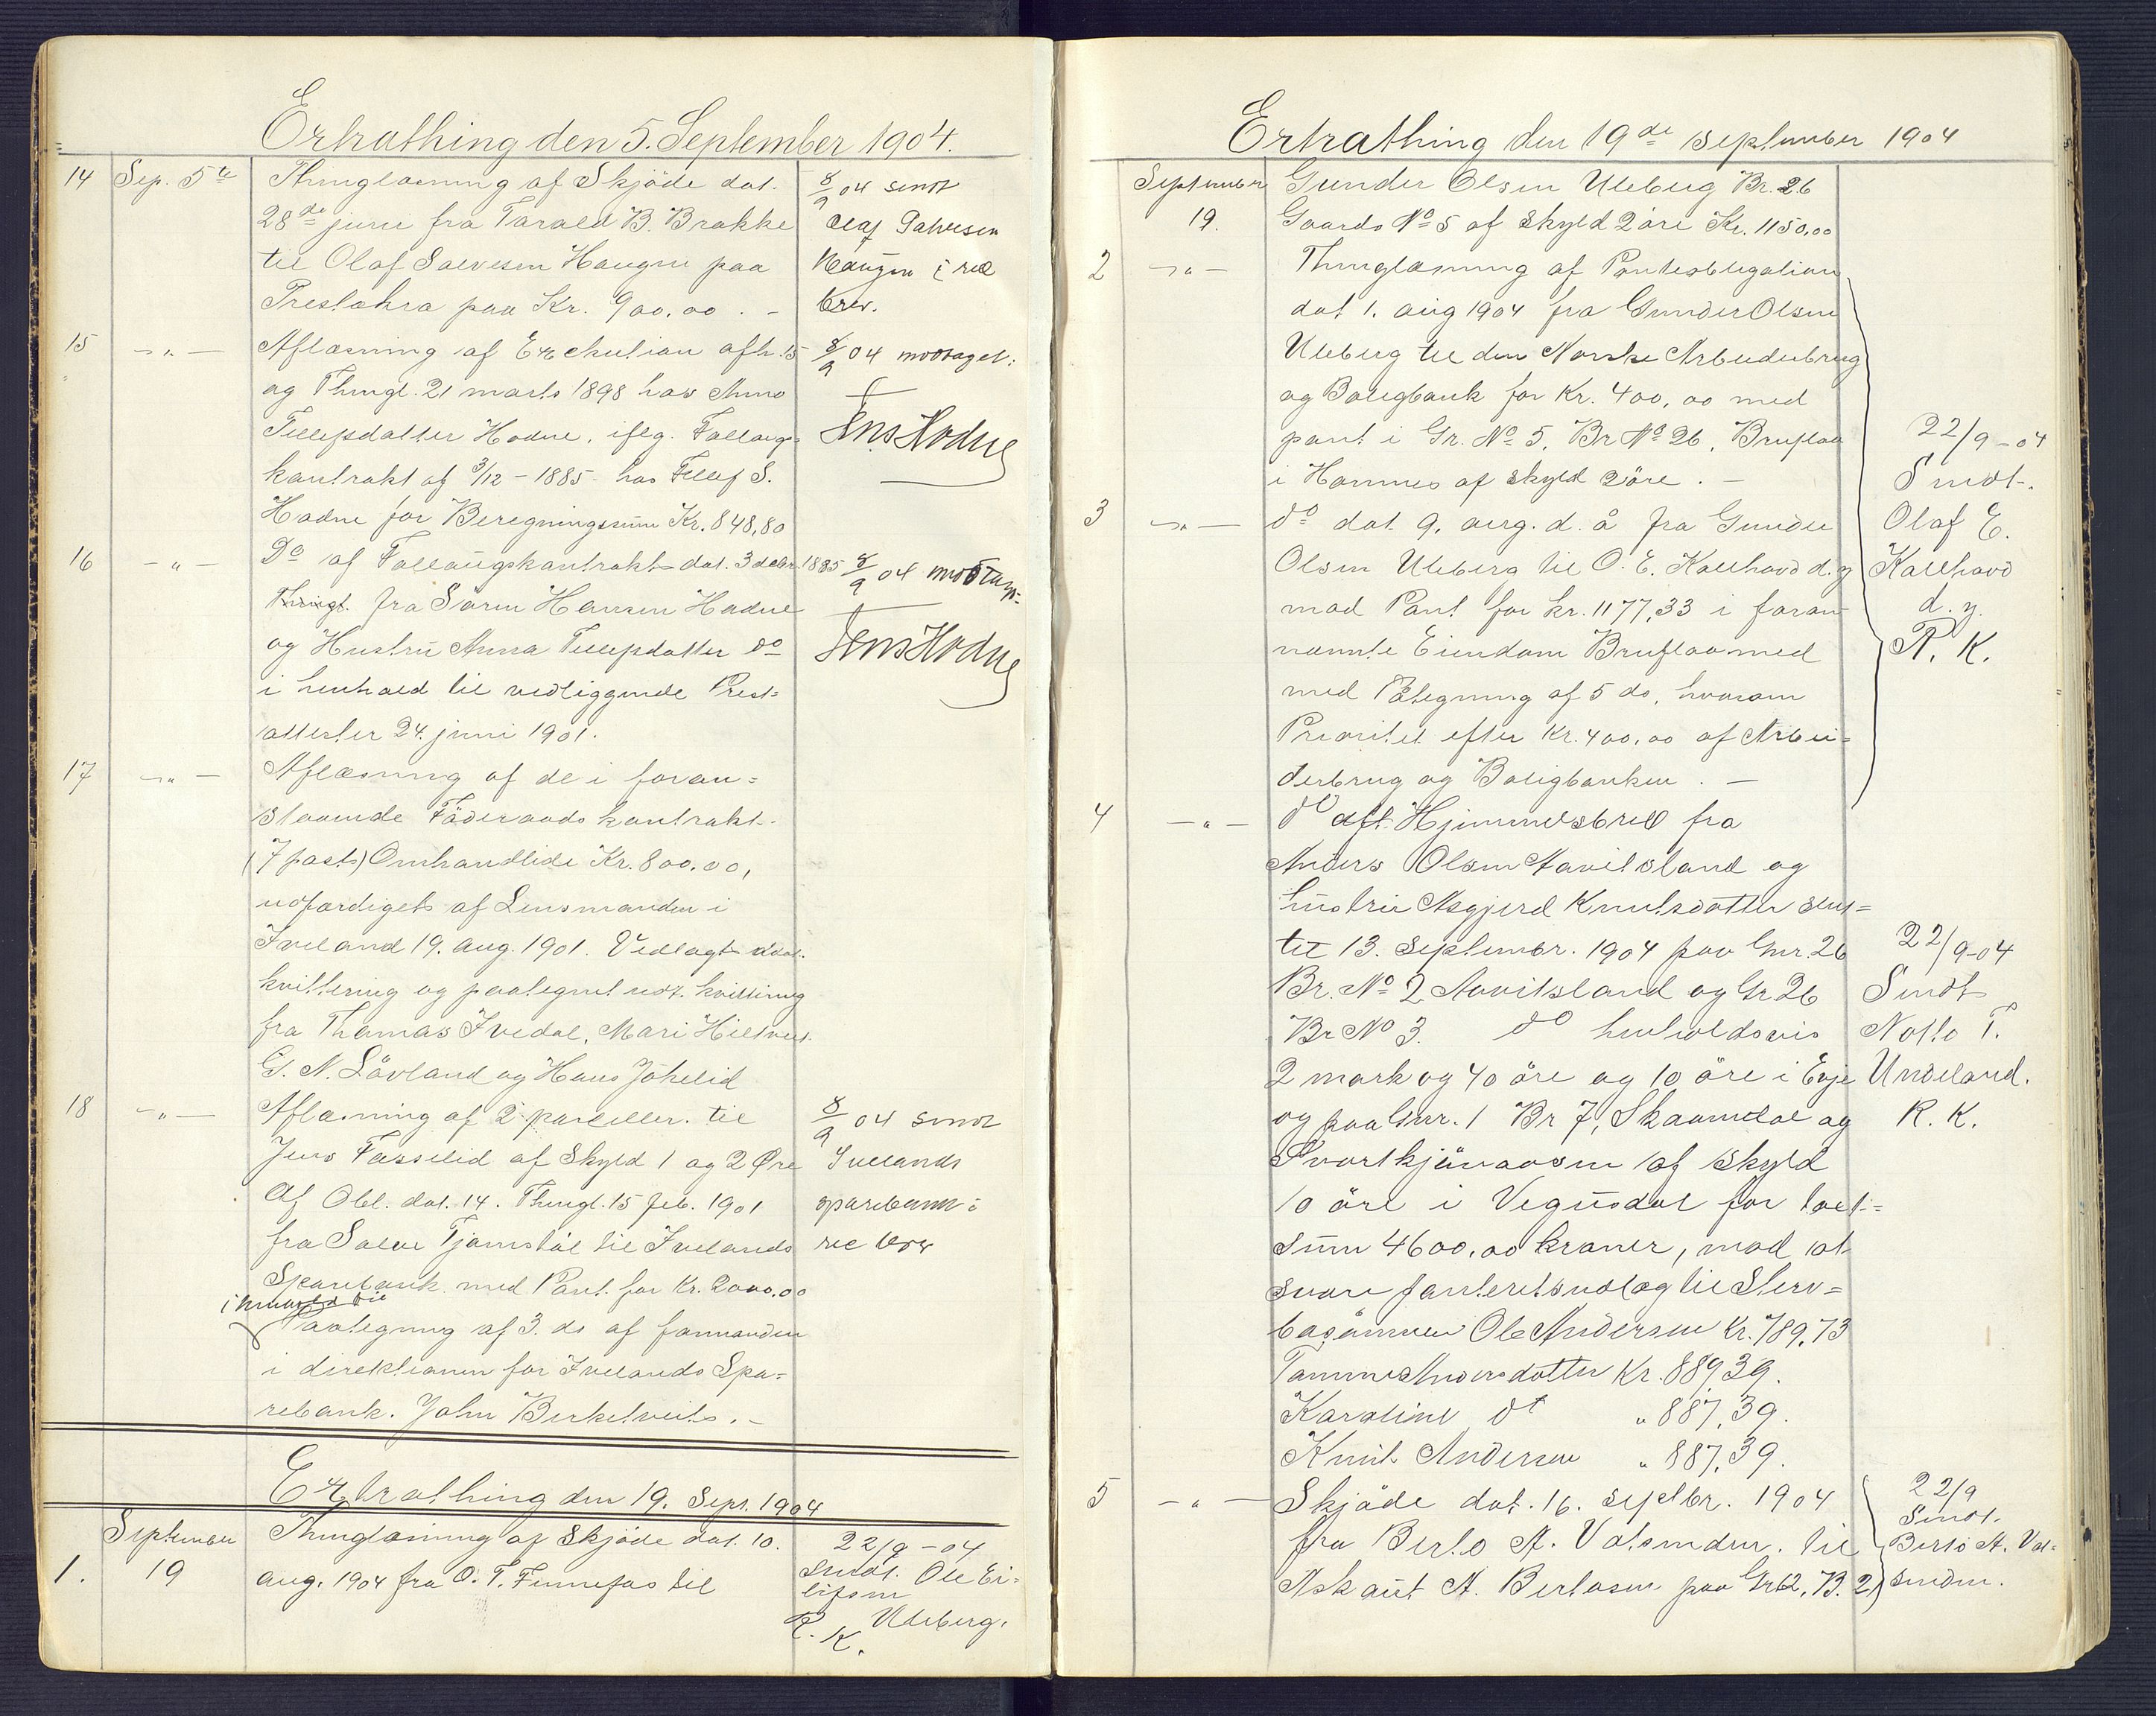 Extrathing den 5. September 1904.
14 Sep. 5te Thinglæsning af Skjöde dat. 8/9 04 sendt
28de juni fra Tarald B. Brokke Olaf Salvesen
til Olaf Salvesen Haugen paa Haugen i rec
Prestakra paa Kr. 900,00. - brev.
15 -„- Aflæsning af Exekution afh. 15 8/9 04 modtaget:
og Thingl. 21 marts 1898 hos Anna
Tellefsdatter Hodne, iflg. Følaugs- Jens Hodne
kontrakt af 3/12 - 1885 hos Tellef S.
Hodne for Beregningssum Kr. 848,80
16 -„- Do af Følaugskontrakt dat. 3 debr. 1885 8/9 04 modtag:
Thingl. fra Sören Hansen Hodne
og Hustru Anna Tellefsdatter do Jens Hodne
i henhold til vedliggende Prest=
attester 24. juni 1901.
17 -„- Aflæsning af de i foran=
staaende Föderaadskontrakt
(7 post) Omhandlede Kr. 800.00,
udfærdiget af Lensmanden i
Iveland 19. aug. 1901. Vedlagt
kvittering og paategnet kvittering
fra Thomas Ivedal, Mari
G. N. Lövland og Hans
18 -„- Aflæsning af 2 parseller til 8/9 04 sendt
Jens Fasselid af Skyld 1 og 2 Øre Ivelands
Af Obl. dat. 14. Thingl. 15 feb. 1901 sparebank i
fra Salve Tjomstöl til Ivelands rec brev
Sparebank med Pant for Kr. 2000.00
i henhold til
Paategning af 3. ds af formanden
i direktionen for Ivelands Spa=
rebank. John Birketveit. -
Extrathing den 19. Sept. 1904
September Thinglæsning af Skjöde dat. 10. 22/9 - 04
1. 19 aug. 1904 fra O. T. Finnefos til Sendt. Ole Ei=
lifsen
Uleberg.
R. K.
Extrathing den 19de September 1904
September Gunder Olsen Uleberg Br. 26
19. Gaards No 5 af Skyld 2 öre Kr. 1150,00
2 -„- Thinglæsning af Panteobligation
dat 1. aug 1904 fra Gunder Olsen
Uleberg til den Norske Arbeiderbrug
og Boligbank for Kr. 400,00 med
pant i Gr. No 5, Br No 26, Bruflaa 22/9 - 04
i Hornnes af Skyld 2 öre. - Sendt.
3 -„- do dat 9. aug. d. å fra Gunder Olaf E.
Olsen Uleberg til O. E. Kallhovd d. y Kallhovd
mod Pant for kr. 1177,33 i foran d. y.
nævnte Eiendom Bruflaa med R. K.
med Påtegning af 5 ds, hvorom
Prioritet efter Kr. 400,00 af Arbei=
derbrug og Boligbanken. -
4 -„- do aft. Hjemmelsbrev fra
Anders Olsen Aavitsland og
hustru Asgjerd Knutsdatter slut=
tet 13. September. 1904 paa Gnr. 26 22/9-04
Br. No 2 Aavitsland og Gr 26 Sendt
Br No 3. do henholdsvis Notto T.
2 mark og 40 öre og 10 öre i Evje Undeland.
og paa Gnr. 1 Br 7, Skaamedal og R. K.
Svartkjönaasen af Skyld
10 öre i Vegusdal for löst=
sum 4600,00 kroner, mod at
svare panteretsudlæg til Sterv=
boarvinger Ole Andersen Kr. 789,73
Tomine Andersdatter Kr. 889,39.
Karoline do „ 887,39.
Knut Andersen „ 887,39.
5 -„- Skjöde dat. 16. septbr. 1904 22/9
Sendt.
fra Berto A. Vatsendn. til Berto A. Vat-
Askaut A. Bertosen paa Gr 12, B. 2 sendn.